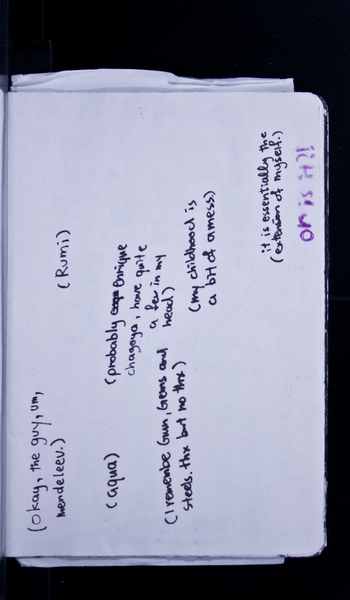 (Okay, the guy, um,
Mendeleev.)
(Rumi)
(aqua)
(probably Enrique
chagoya, have quite
a few in my
head)
(I remembe Gun, Germs and
steels. thx but no thx.)
(my childhood is
a bit of a mess)
it is essentially the
(extension of myself.)
OR is it?!